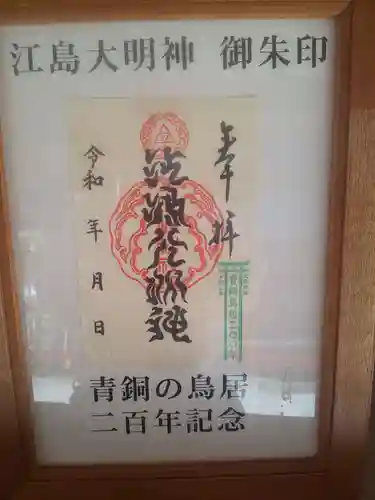 江島大明神 御朱印
奉拝
江島大明神
令和 年 月 日
青銅の鳥居
二百年記念